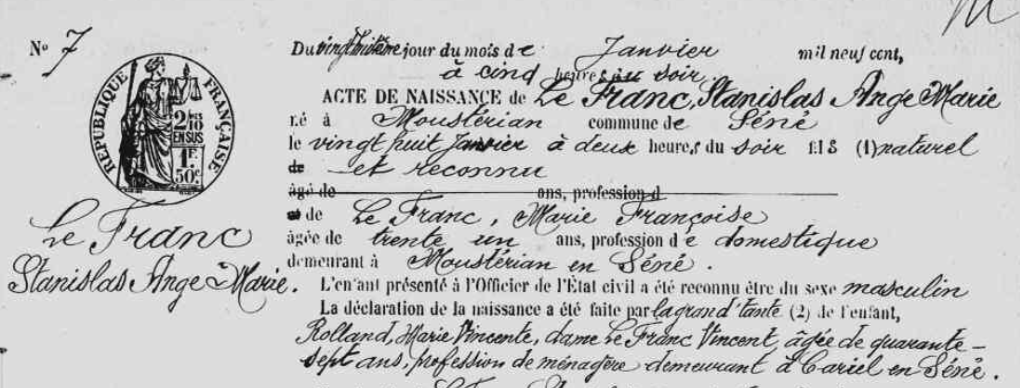 N° 7
Du vingt huitième jour du mois de Janvier mil neuf cent,
à cinq heures du soir.
ACTE DE NAISSANCE de Le Franc, Stanislas Ange Marie
né à Moustérian commune de Séné
le vingt huit Janvier à deux heures du soir fils (1) naturel
de et reconnu
âgé de ans, profession d
et de Le Franc, Marie Françoise
âgée de trente un ans, profession de domestique
demeurant à Moustérian en Séné.
L'enfant présenté à l'Officier de l'État civil a été reconnu être du sexe masculin
La déclaration de la naissance a été faite par la grand'tante (2) de l'enfant,
Rolland, Marie Vincente, dame Le Franc Vincent, âgée de quarante-
sept ans, profession de ménagère demeurant à Cariel en Séné.
RÉPUBLIQUE FRANÇAISE
2/10
EN SUS
1F.
50c.
Le Franc
Stanislas Ange Marie.